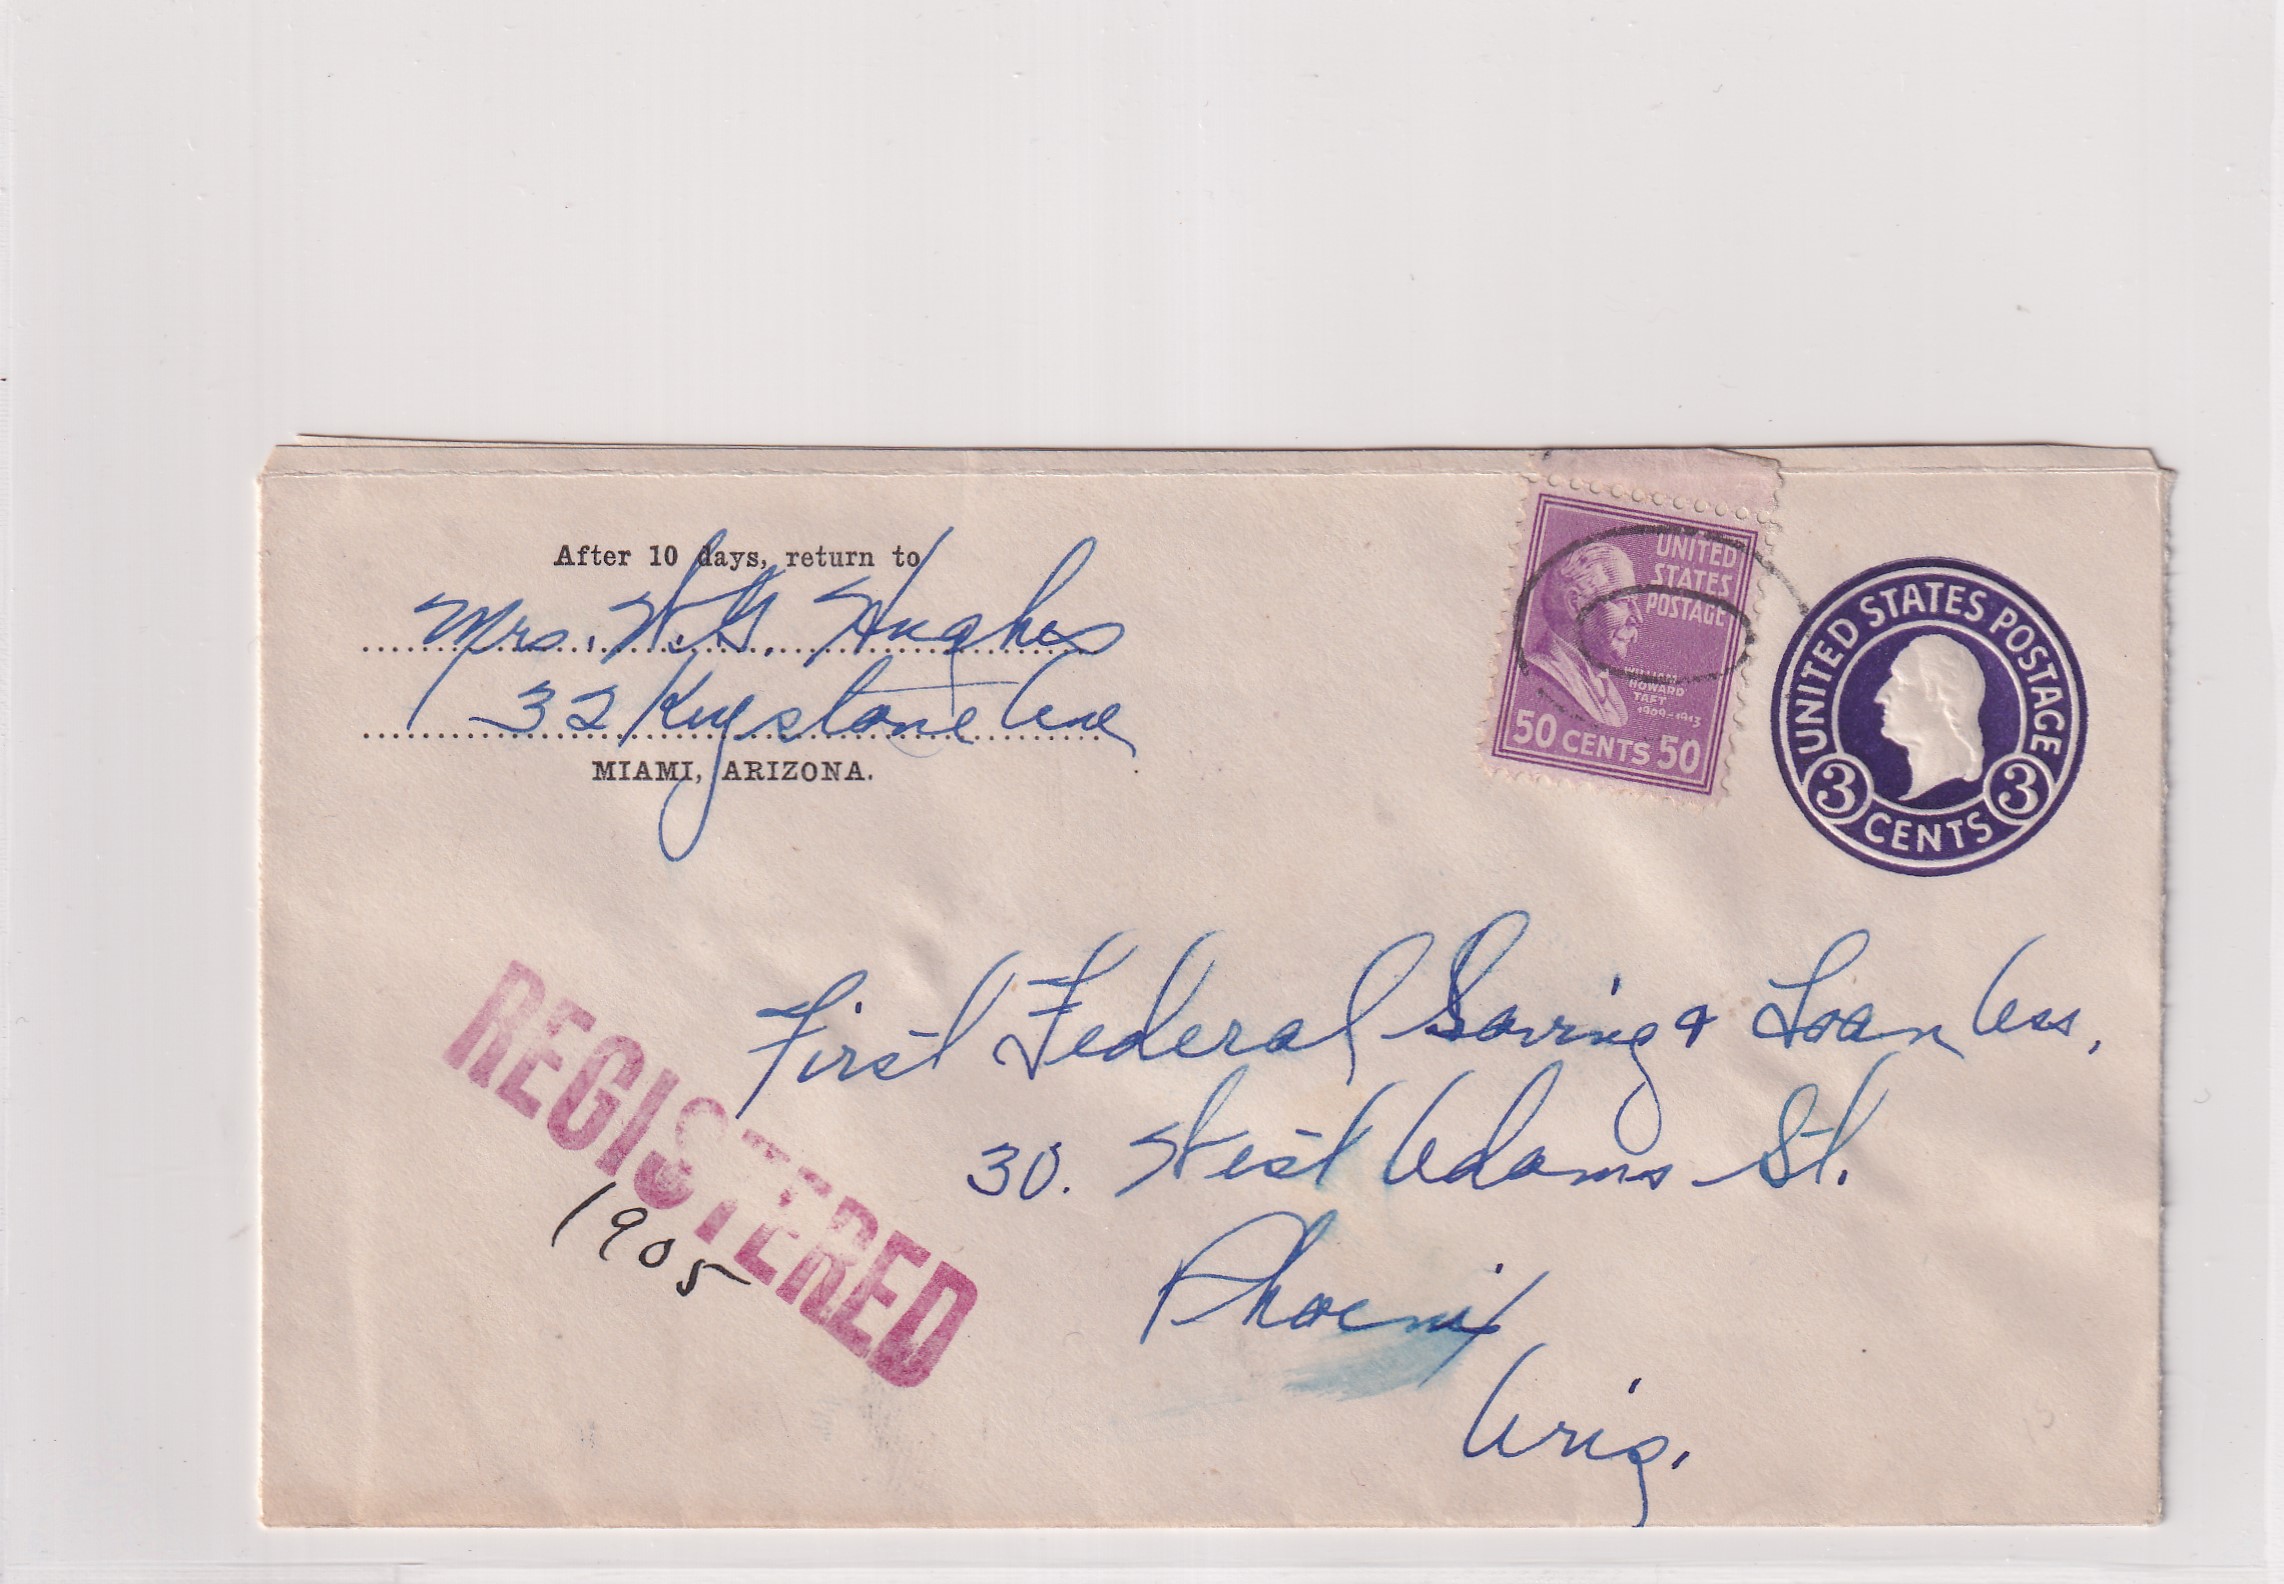 After 10 days, return to
Mrs. W. G. Hughes
32 Keystone Ave
MIAMI, ARIZONA.
UNITED
STATES
POSTAGE
WILLIAM
HOWARD
TAFT
1909-1913
50 CENTS 50
UNITED STATES POSTAGE
3 CENTS 3
REGISTERED
1905
First Federal Saving & Loan Ass.
30. West Adams St.
Phoenix
Ariz.